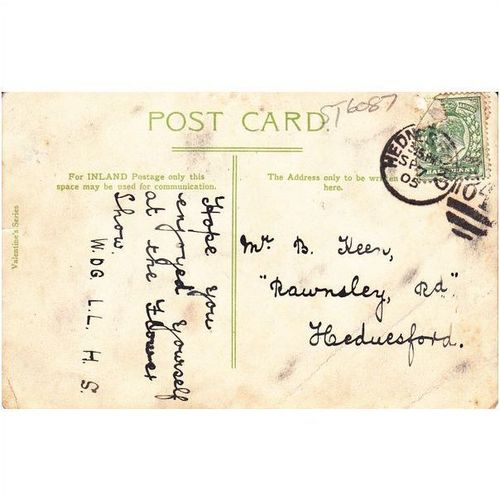 POST CARD.
ST6087
For INLAND Postage only this
space may be used for communication.
The Address only to be written
here.
Valentine's Series
Hope you
enjoyed yourself
at the Flower
Show.
W D G L. L. H. S.
Mr. B. Keen,
"Rawnsley, Rd"
Hednesford.
HEDNES
SP
05